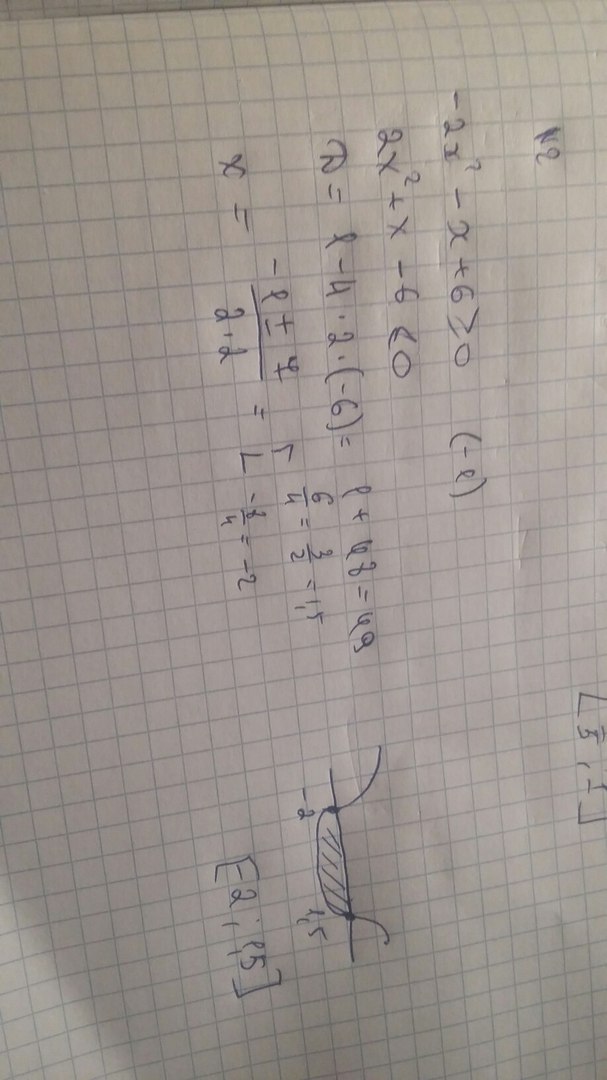 [1/5; 1]
№2
-2x² - x + 6 ≥ 0 (-1)
2x² + x - 6 ≤ 0
D = 1 - 4 · 2 · (-6) = 1 + 48 = 49
x = (-1 ± 7)/(2 · 2) = [ 6/4 = 3/2 = 1,5
-8/4 = -2
-2 1,5
[-2; 1,5]